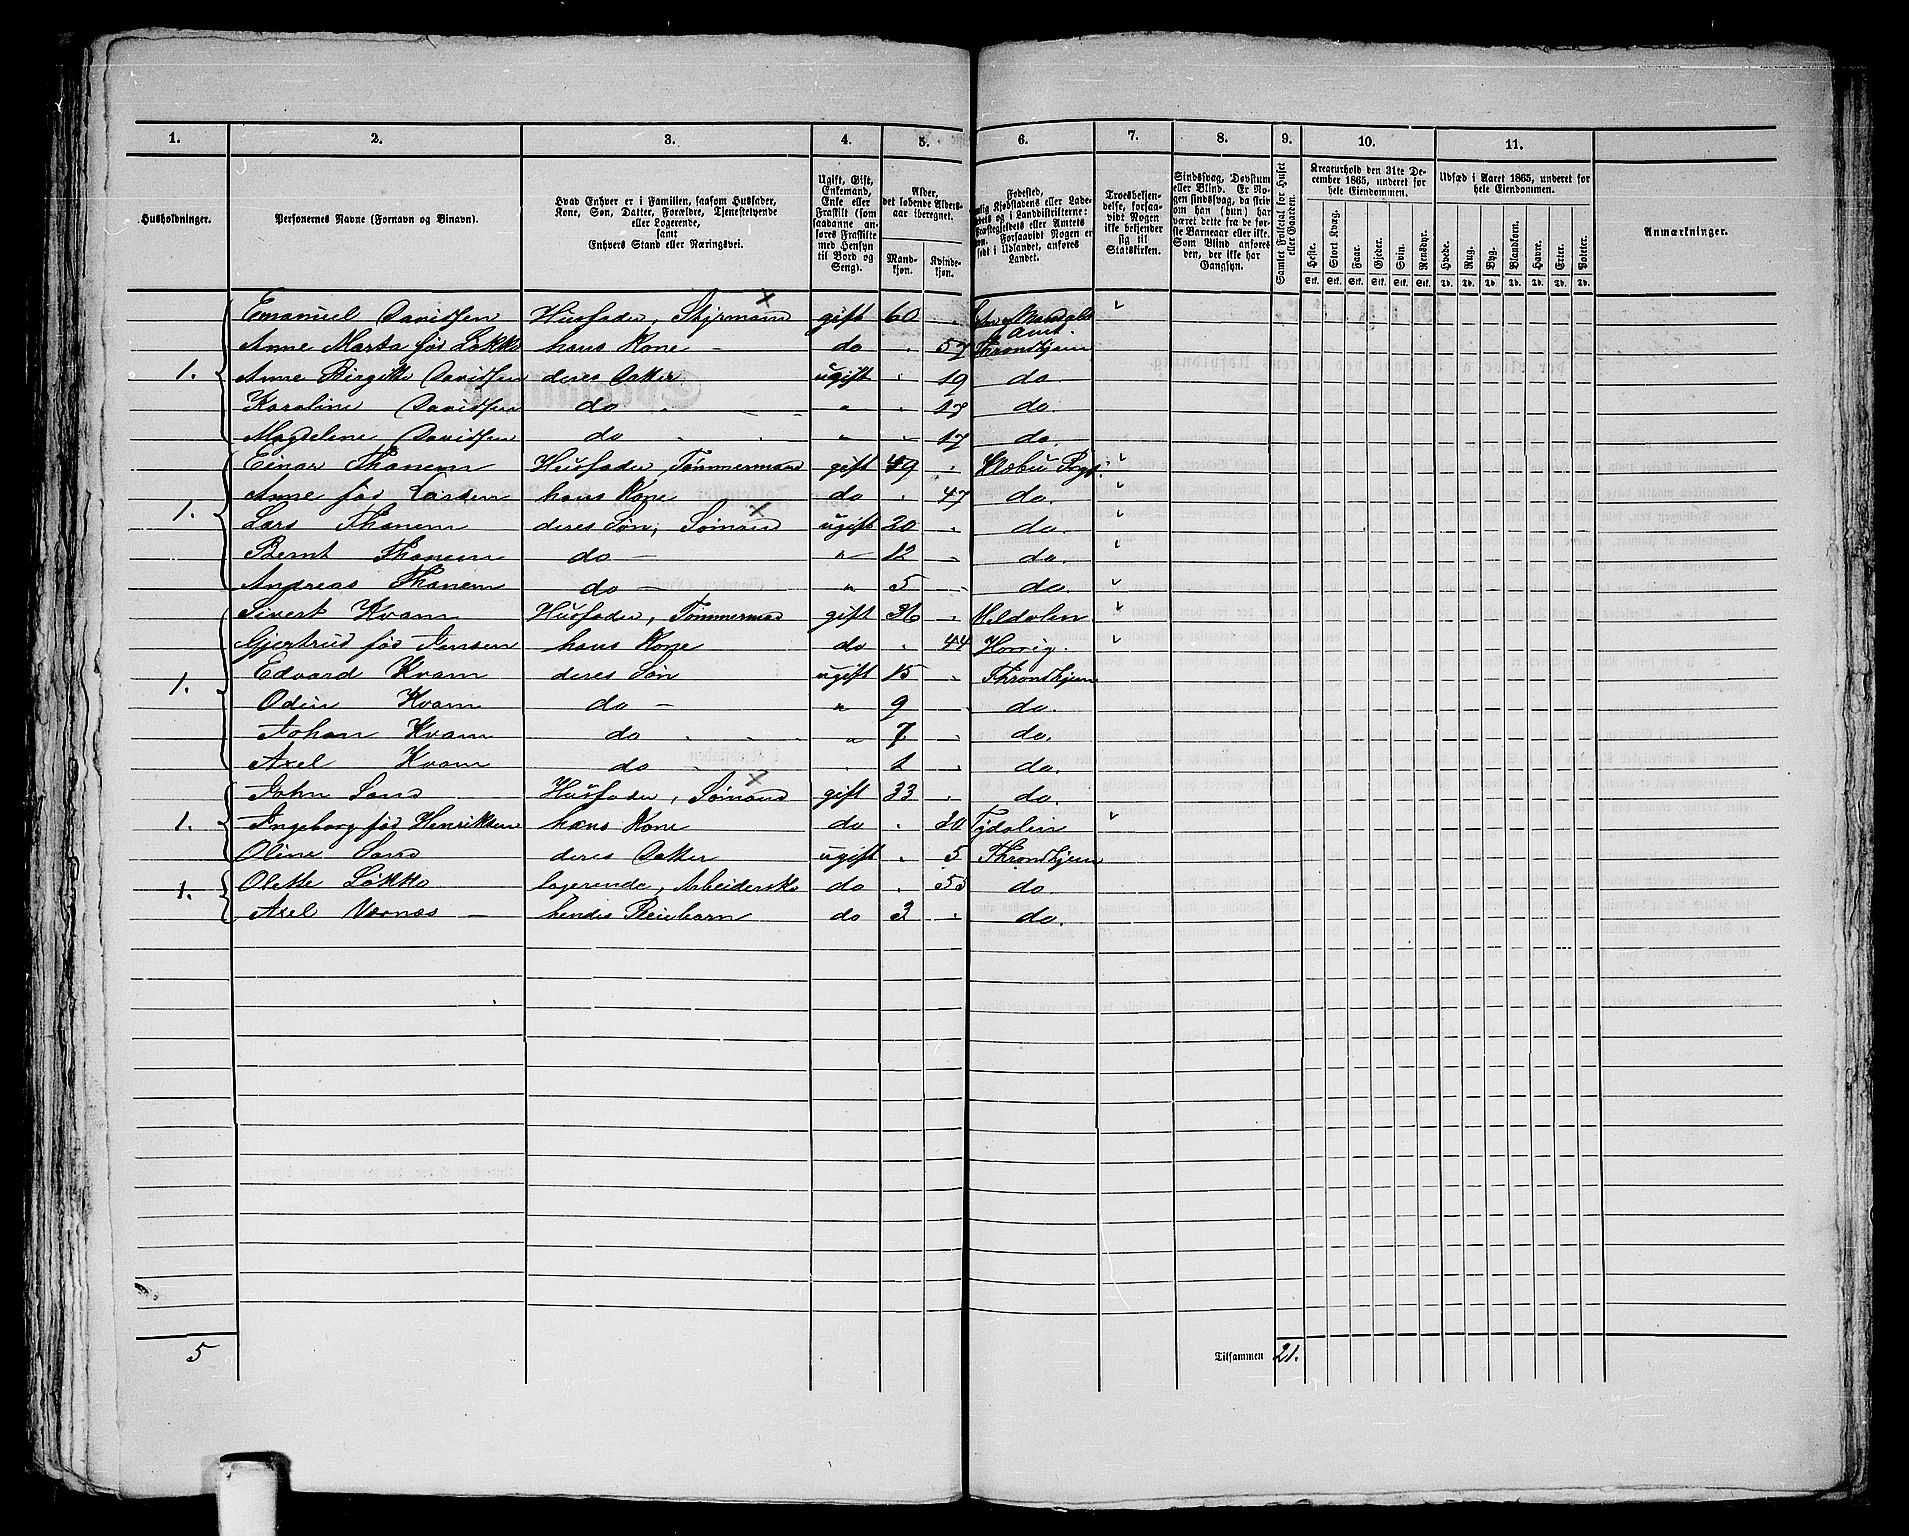 1. 2. 3. 4. 5. 6. 7. 8. 9. 10. 11.
Husholdninger.
Personernes Navne (Fornavn og Binavn).
Hvad Enhver er i Familien, saasom Husfader,
Kone, Søn, Datter, Forældre, Tjenestetyende
eller Logerende,
samt
Enhvers Stand eller Næringsvei.
Ugift, Gift,
Enkemand,
Enke eller
Fraskilt (som
saadanne an-
føres Fraskilte
med Hensyn
til Bord og
Seng).
Alder,
det løbende Alders-
aar iberegnet.
Mand-
kjøn.
Kvinde-
kjøn.
Fødested,
Forsaavidt Nogen er
født i Udlandet, anføres
Landet.
Troesbekjen-
delse, forsaa-
vidt Nogen
ikke bekjender
sig til
Statskirken.
Sindssvag, Døvstum
eller Blind. Er No-
gen sindssvag, da skriv
om han (hun) har
været dette fra de før-
ste Barneaar eller ikke.
Som Blind anføres
den, der ikke har
Gangsyn.
Samlet Folketal for Huset
eller Gaarden.
Kreaturhold den 31te De-
cember 1865, underet for
hele Eiendommen.
Heste. Stort Kvæg. Faar. Gjeder. Svin. Rensdyr.
Stk. Stk. Stk. Stk. Stk. Stk.
Udsæd i Aaret 1865, underet for
hele Eiendommen.
Hvede. Rug. Byg. Blandkorn. Havre. Erter. Poteter.
Td. Td. Td. Td. Td. Td. Td.
Anmærkninger.
Emanuel Davidsen Husfader, Styrmand gift 60 Mandals Amt.
Anne Marta fød Løkke hans Kone do 57 Throndhjem
1. Anne Birgitte Davidsen deres Datter ugift 19 do.
Karoline Davidsen do " 17 do.
Magdelene Davidsen do " 17 do.
Einar Thanem Husfader, Tømmermand gift 49 Klæbu Prgj.
Anne fød Larsen hans Kone do 47 do.
1. Lars Thanem deres Søn, Sømand ugift 20 do.
Bernt Thanem do " 12 do.
Andreas Thanem do " 5 do.
Sivert Kvam Husfader, Tømmermand gift 36 Meldalen
Gjertrud fød Jensen hans Kone do 44 Horrig.
1. Edvard Kvam deres Søn ugift 15 Throndhjem
Odin Kvam do " 9 do.
Johan Kvam do " 7 do.
Axel Kvam do 1 do.
John Sand Husfader, Sømand gift 33 do.
1. Ingeborg fød Henriksen hans Kone do 30 Tydalen
Oline Sand deres Datter ugift 5 Throndhjem
1. Olette Løkke logerende, Arbeiderske do 55 do.
Axel Værnæs hendes Pleiebarn do 3 do.
5 Tilsammen 21.